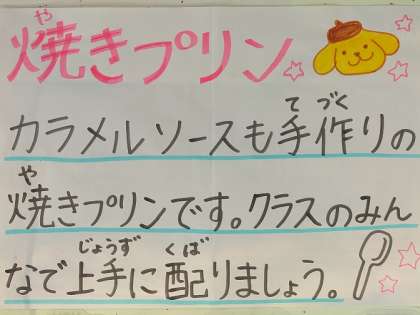 や
焼きプリン
てづく
カラメルソースも手作りの
や
焼きプリンです。クラスのみん
じょうず くば
なで上手に配りましょう。